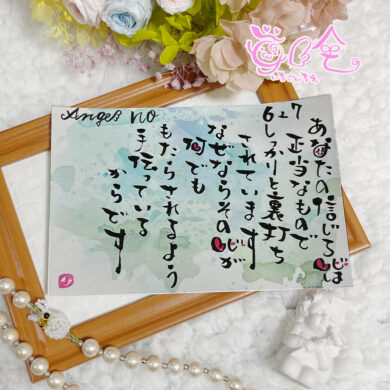 Angel no
627
あなたの信じる心は
正当なもので
しっかりと裏打ち
されています
なぜならその心が
何でも
もたらされるよう
手伝っている
からです